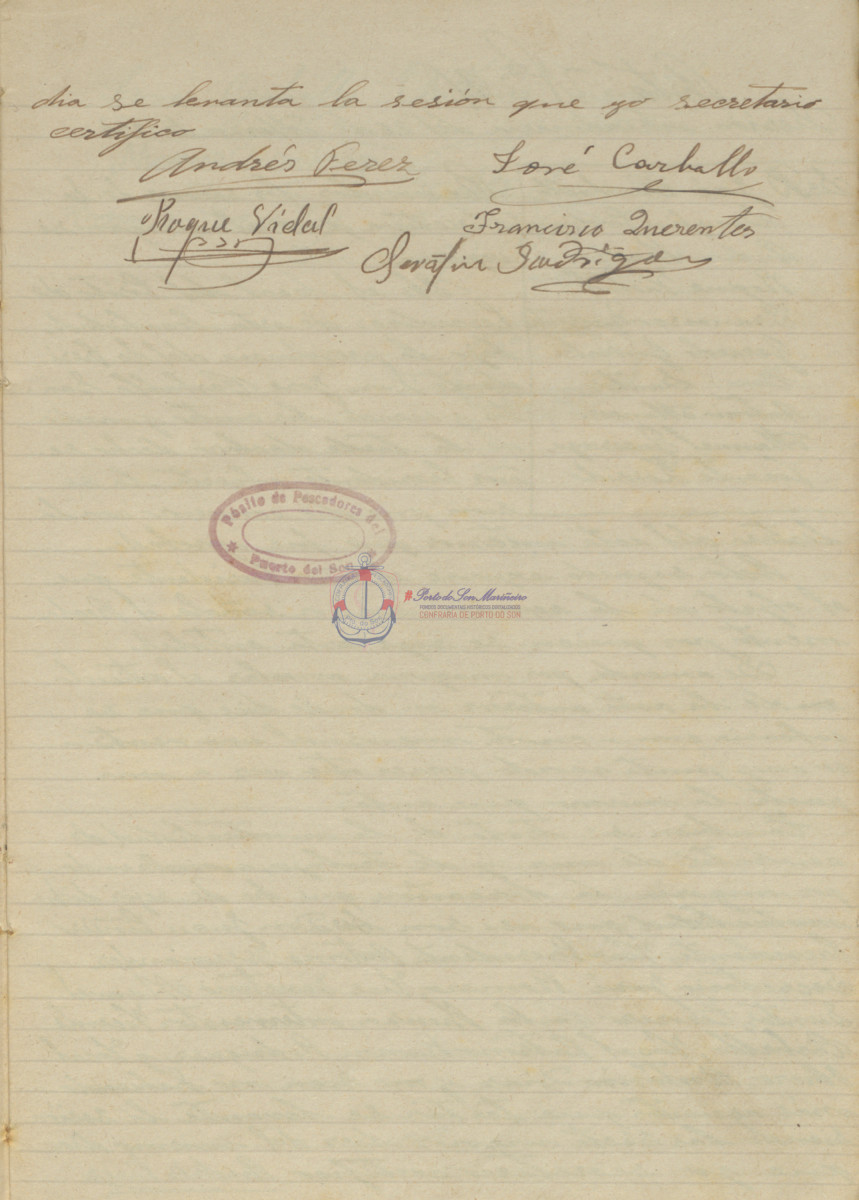 dia se levanta la sesión que yo secretario
certifico
Andrés Perez José Carballo
Roque Vidal Francisco Querentes
Serafin
Pósito de Pescadores del
Puerto del Son
Porto do Son Mariñeiro
FONDOS DOCUMENTAIS HISTÓRICOS DIXITALIZADOS
CONFRARÍA DE PORTO DO SON